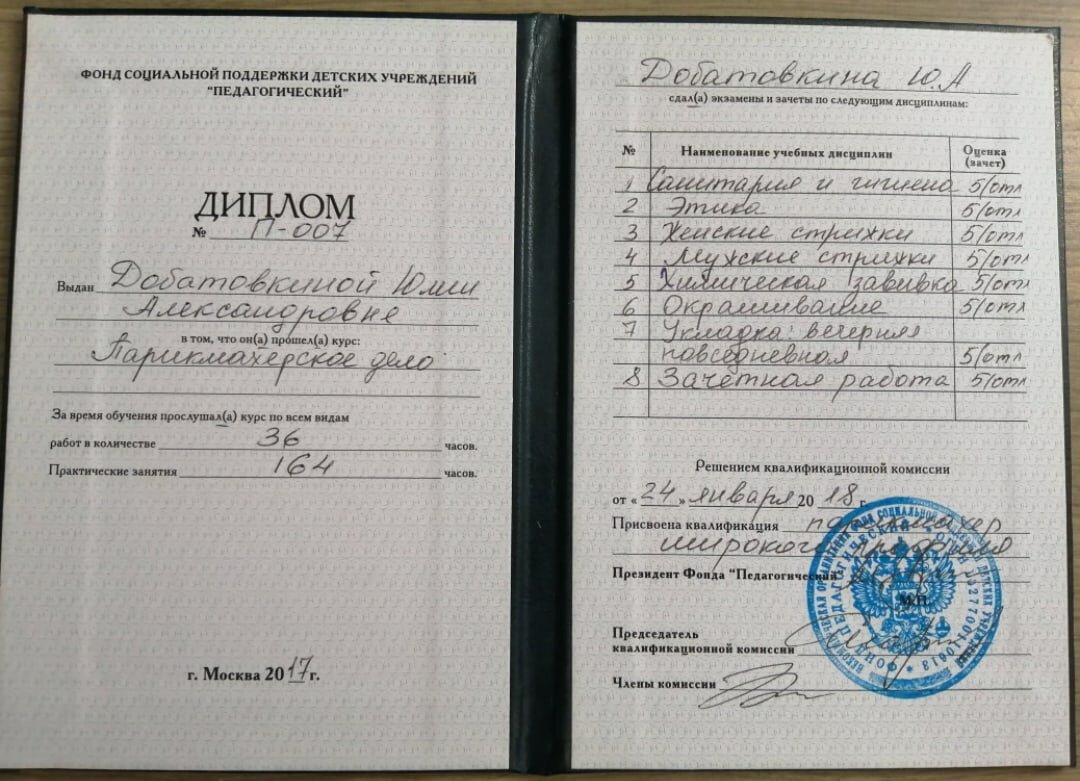 ФОНД СОЦИАЛЬНОЙ ПОДДЕРЖКИ ДЕТСКИХ УЧРЕЖДЕНИЙ
"ПЕДАГОГИЧЕСКИЙ"
ДИПЛОМ
№ П-007
Выдан Добатовкиной Юлии
Александровне
в том, что он(а) прошел(а) курс:
Парикмахерское дело
За время обучения прослушал(а) курс по всем видам
работ в количестве 36 часов.
Практические занятия 164 часов.
г. Москва 2017 г.
Добатовкина Ю.А
сдал(а) экзамены и зачеты по следующим дисциплинам:
№ Наименование учебных дисциплин Оценка (зачет)
1 Санитария и гигиена 5/отл
2 Этика 5/отл
3 Женские стрижки 5/отл
4 Мужские стрижки 5/отл
5 Химическая завивка 5/отл
6 Окрашивание 5/отл
7 Укладка: вечерняя
повседневная 5/отл
8 Зачетная работа 5/отл
Решением квалификационной комиссии
от «24» января 2018 г.
Присвоена квалификация парикмахер
широкого профиля
Президент Фонда "Педагогический"
М.П.
Председатель
квалификационной комиссии
Члены комиссии